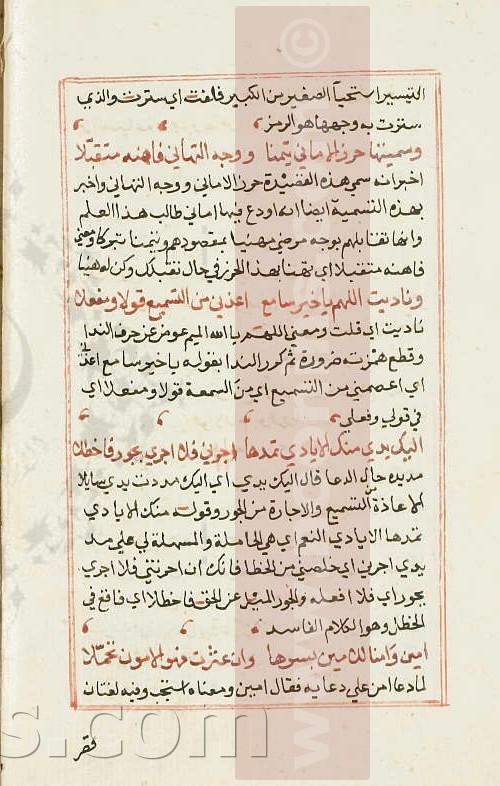 التيسير استحيآ الصغير من الكبير فلفت اي سترت والذي
سترت به وجهها هو الرمز
وسميتها حرز الاماني تيمنا ووجه التهاني فاهنه متقبلا
اخبر انه سمي هذه القصيدة حرز الاماني ووجه التهاني واخبر
بهذه التسمية ايضا انه اودع فيها اماني طالب هذا العلم
وانها تقابلهم بوجه مرضي مهنيا بمقصودهم وتيمنا تبركا ومعني
فاهنه متقبلا اي تهنا بهذا الحرز في حال تقبلك وكن له هنيا
وناديت اللهم يا خير سامع اعذني من التسميع قولا ومفعلا
ناديت اي قلت ومعني اللهم يا الله الميم عوض عن حرف الندا
وقطع همزته ضرورة ثم كرر الندا بقوله يا خير سامع اعذني
اي اعصمني من التسميع اي من السمعة قولا ومفعلا اي
في قولي وفعلي
اليك يدي منك الايادي تمدها اجرني فلا اجري بجور فاخطلا
مد يده حال الدعا قال اليك يدي اي اليك مددت يدي سايلا
الاعاذة من التسميع والاجارة من الجور وقوله منك الايادي
تمدها الايادي النعم اي هي الحاملة والمسهلة لي علي مد
يدي اجرني اي خلصني من الخطا فانك ان اجرتني فلا اجري
بجور اي فلا افعله والجور الميل عن الحق فاخطلا اي فاقع في
الخطل وهو الكلام الفاسد
امين وامنا للامين بسرها وان عثرت فهو الامون تحملا
لما دعا امن علي دعايه فقال امين ومعناه استجب وفيه لغتان
قصر
s.com